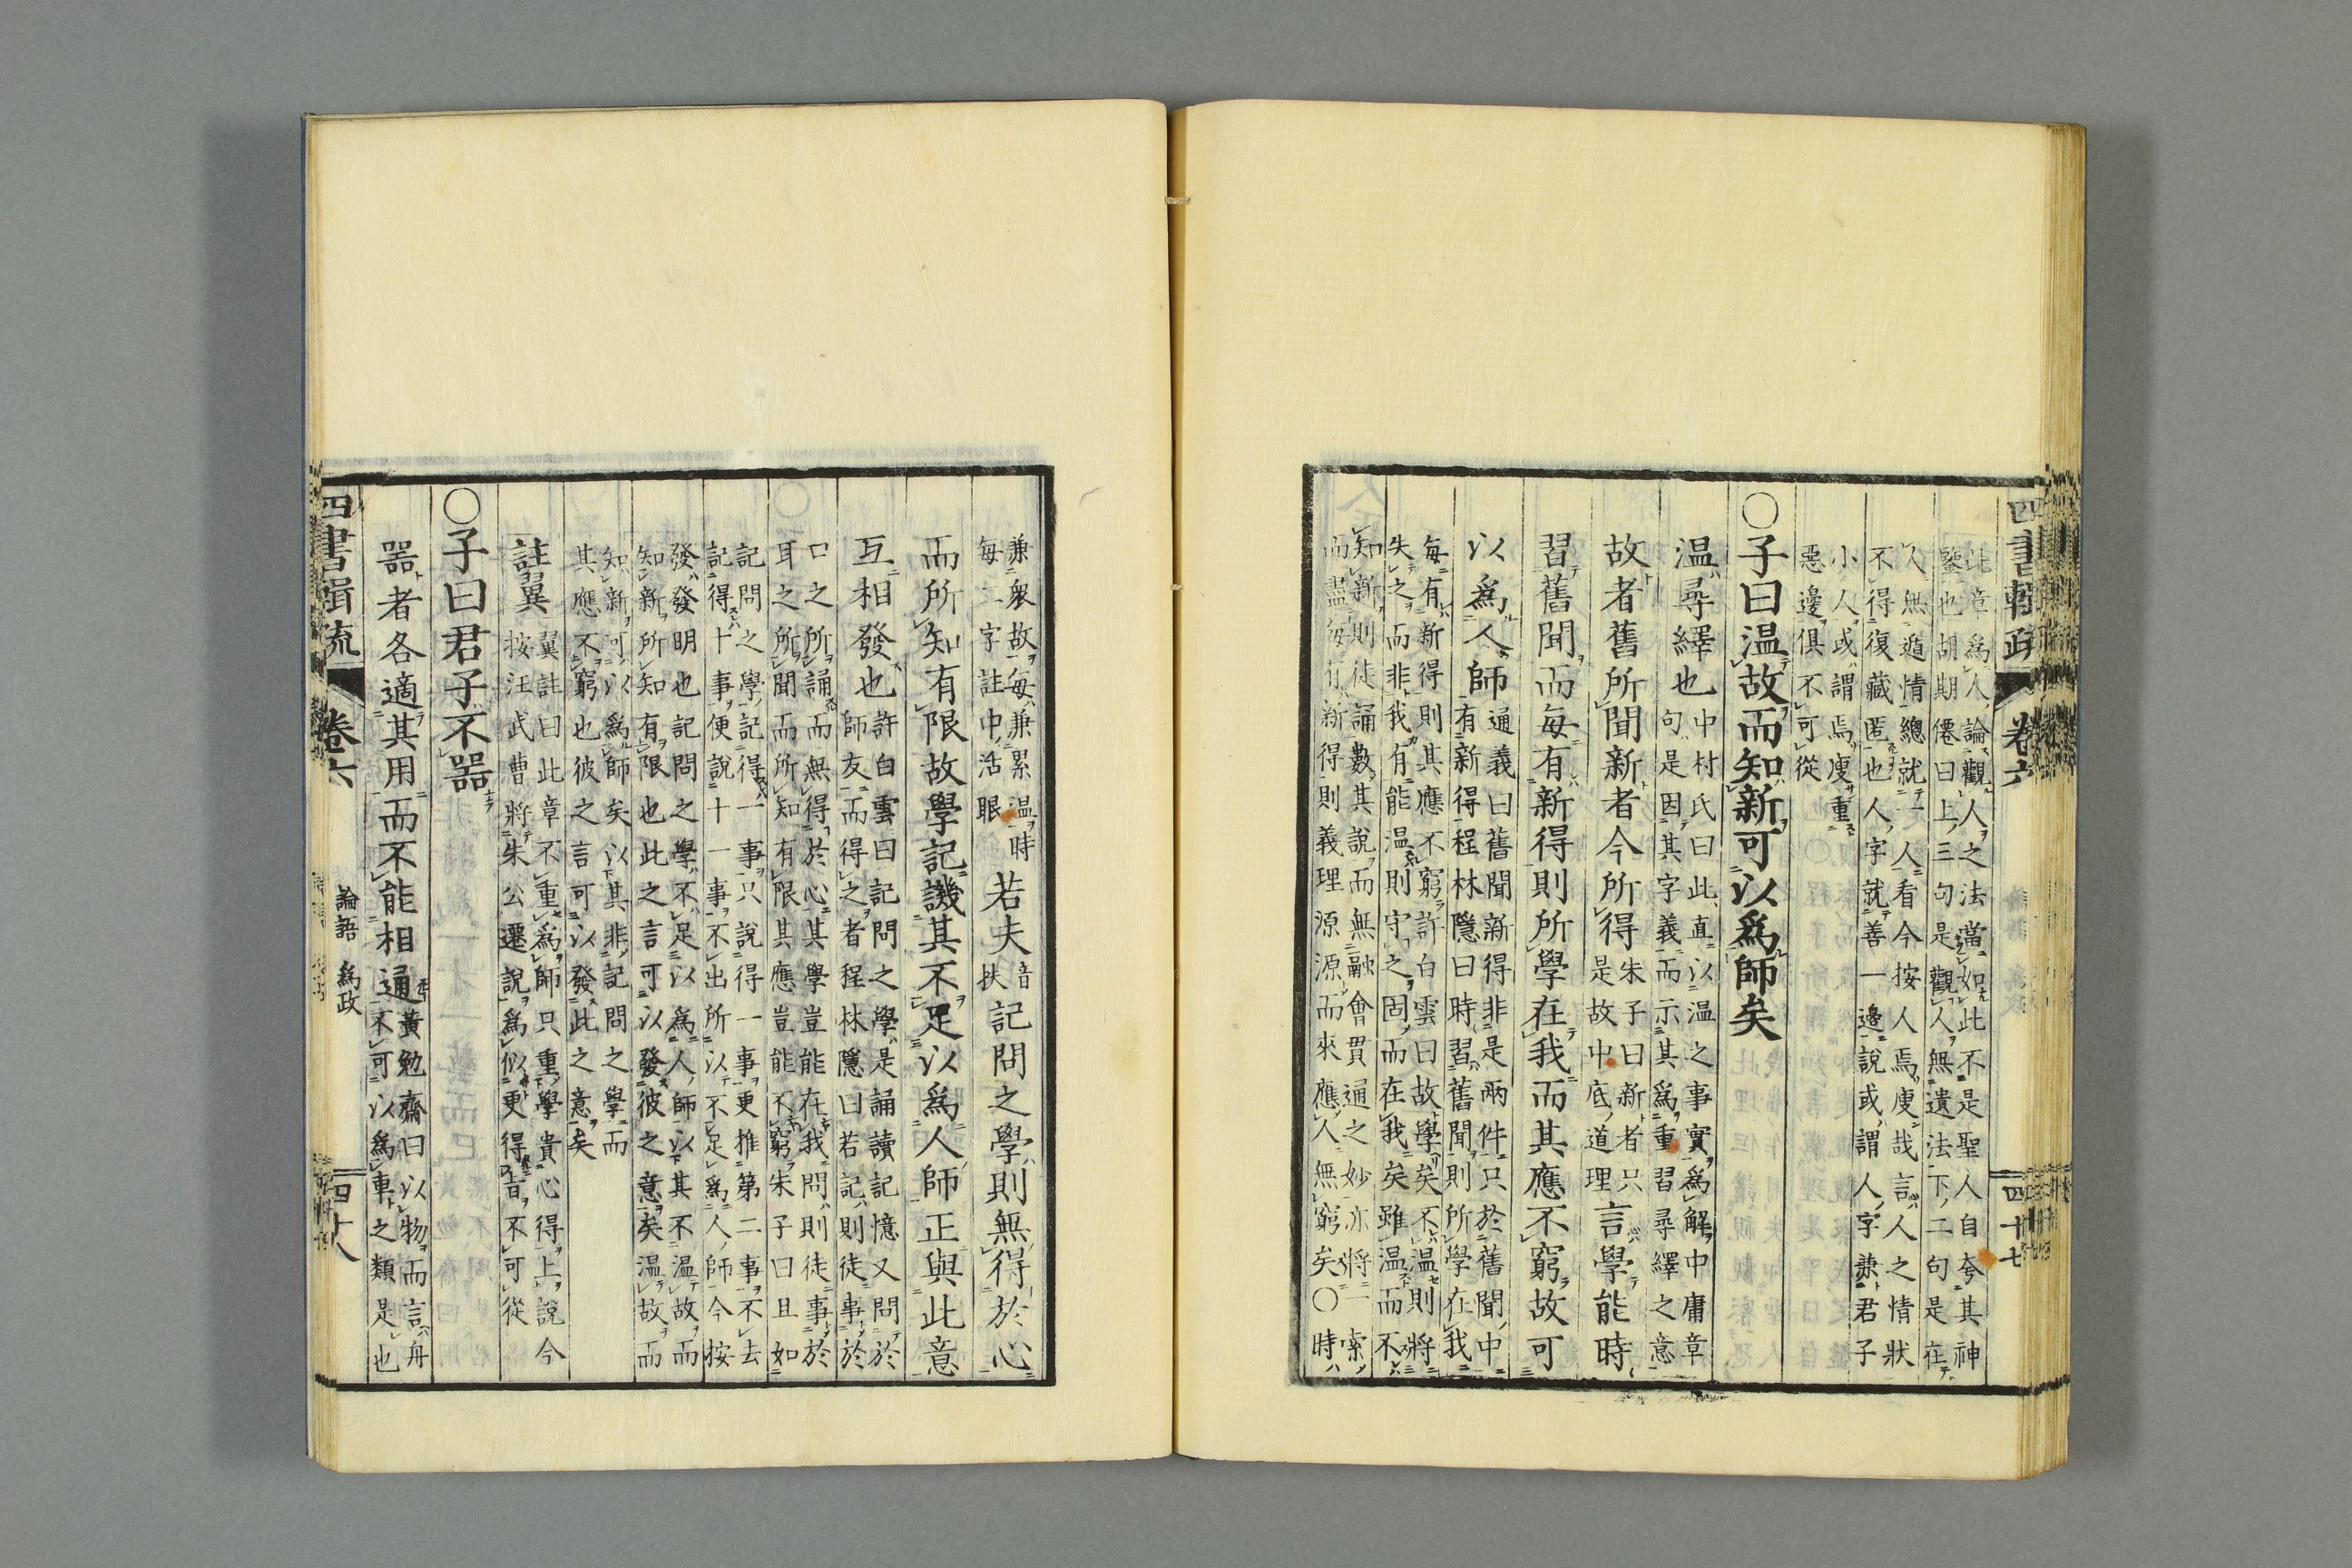 四書輯疏 卷六 四十七
此章爲人論觀人之法當如此不是聖人自夸其神
鑒也胡期僊曰上三句是觀人無遺法下二句是在
人無遁情總就一人看今按人焉廋哉言人之情狀
不得復藏匿也人字就善一邊說或謂人字兼君子
小人或謂焉廋重
惡邊俱不可從
○子曰温故而知新可以爲師矣
温尋繹也
中村氏曰此直以温之事實爲解中庸章
句是因其字義而示其爲重習尋繹之意
故者舊所聞新者今所得
朱子曰新者只
是故中底道理
言學能時
習舊聞而每有新得則所學在我而其應不窮故可
以爲人師
通義曰舊聞新得非是兩件只於舊聞中
有新得程林隱曰時習舊聞則所學在我
每有新得則其應不窮許白雲曰故學矣不温則將
失之而非我有能温則守之固而在我矣雖温而不
知新則徒誦數其說而無融會貫通之妙亦將一索
而盡每有新得則義理源源而來應人無窮矣○時
兼衆故每兼累温時
每二字註中活眼
若夫
音
扶
記問之學則無得於心
而所知有限故學記譏其不足以爲人師正與此意
互相發也
許白雲曰記問之學是誦讀記憶又問於
師友而得之者程林隱曰若記則徒事於
口之所誦而無得於心其學豈能在我問則徒事於
耳之所聞而所知有限其應豈能不窮朱子曰且如
記問之學記得一事只說得一事更推第二事不去
記得十事便說十一事不出所以不足爲人師今按
發發明也記問之學不足以爲人師以其不温故而
知新所知有限也此之言可以發彼之意矣温故而
知新可以爲師矣以其非記問之學而
其應不窮也彼之言可以發此之意矣
註翼
翼註曰此章不重爲師只重學貴心得上說今
按汪武曹將朱公遷說爲似更得旨不可從
○子曰君子不器
器者各適其用而不能相通
黃勉齋曰以物而言舟
不可以爲車之類是也
四書輯疏 卷六 論語 爲政 四十八